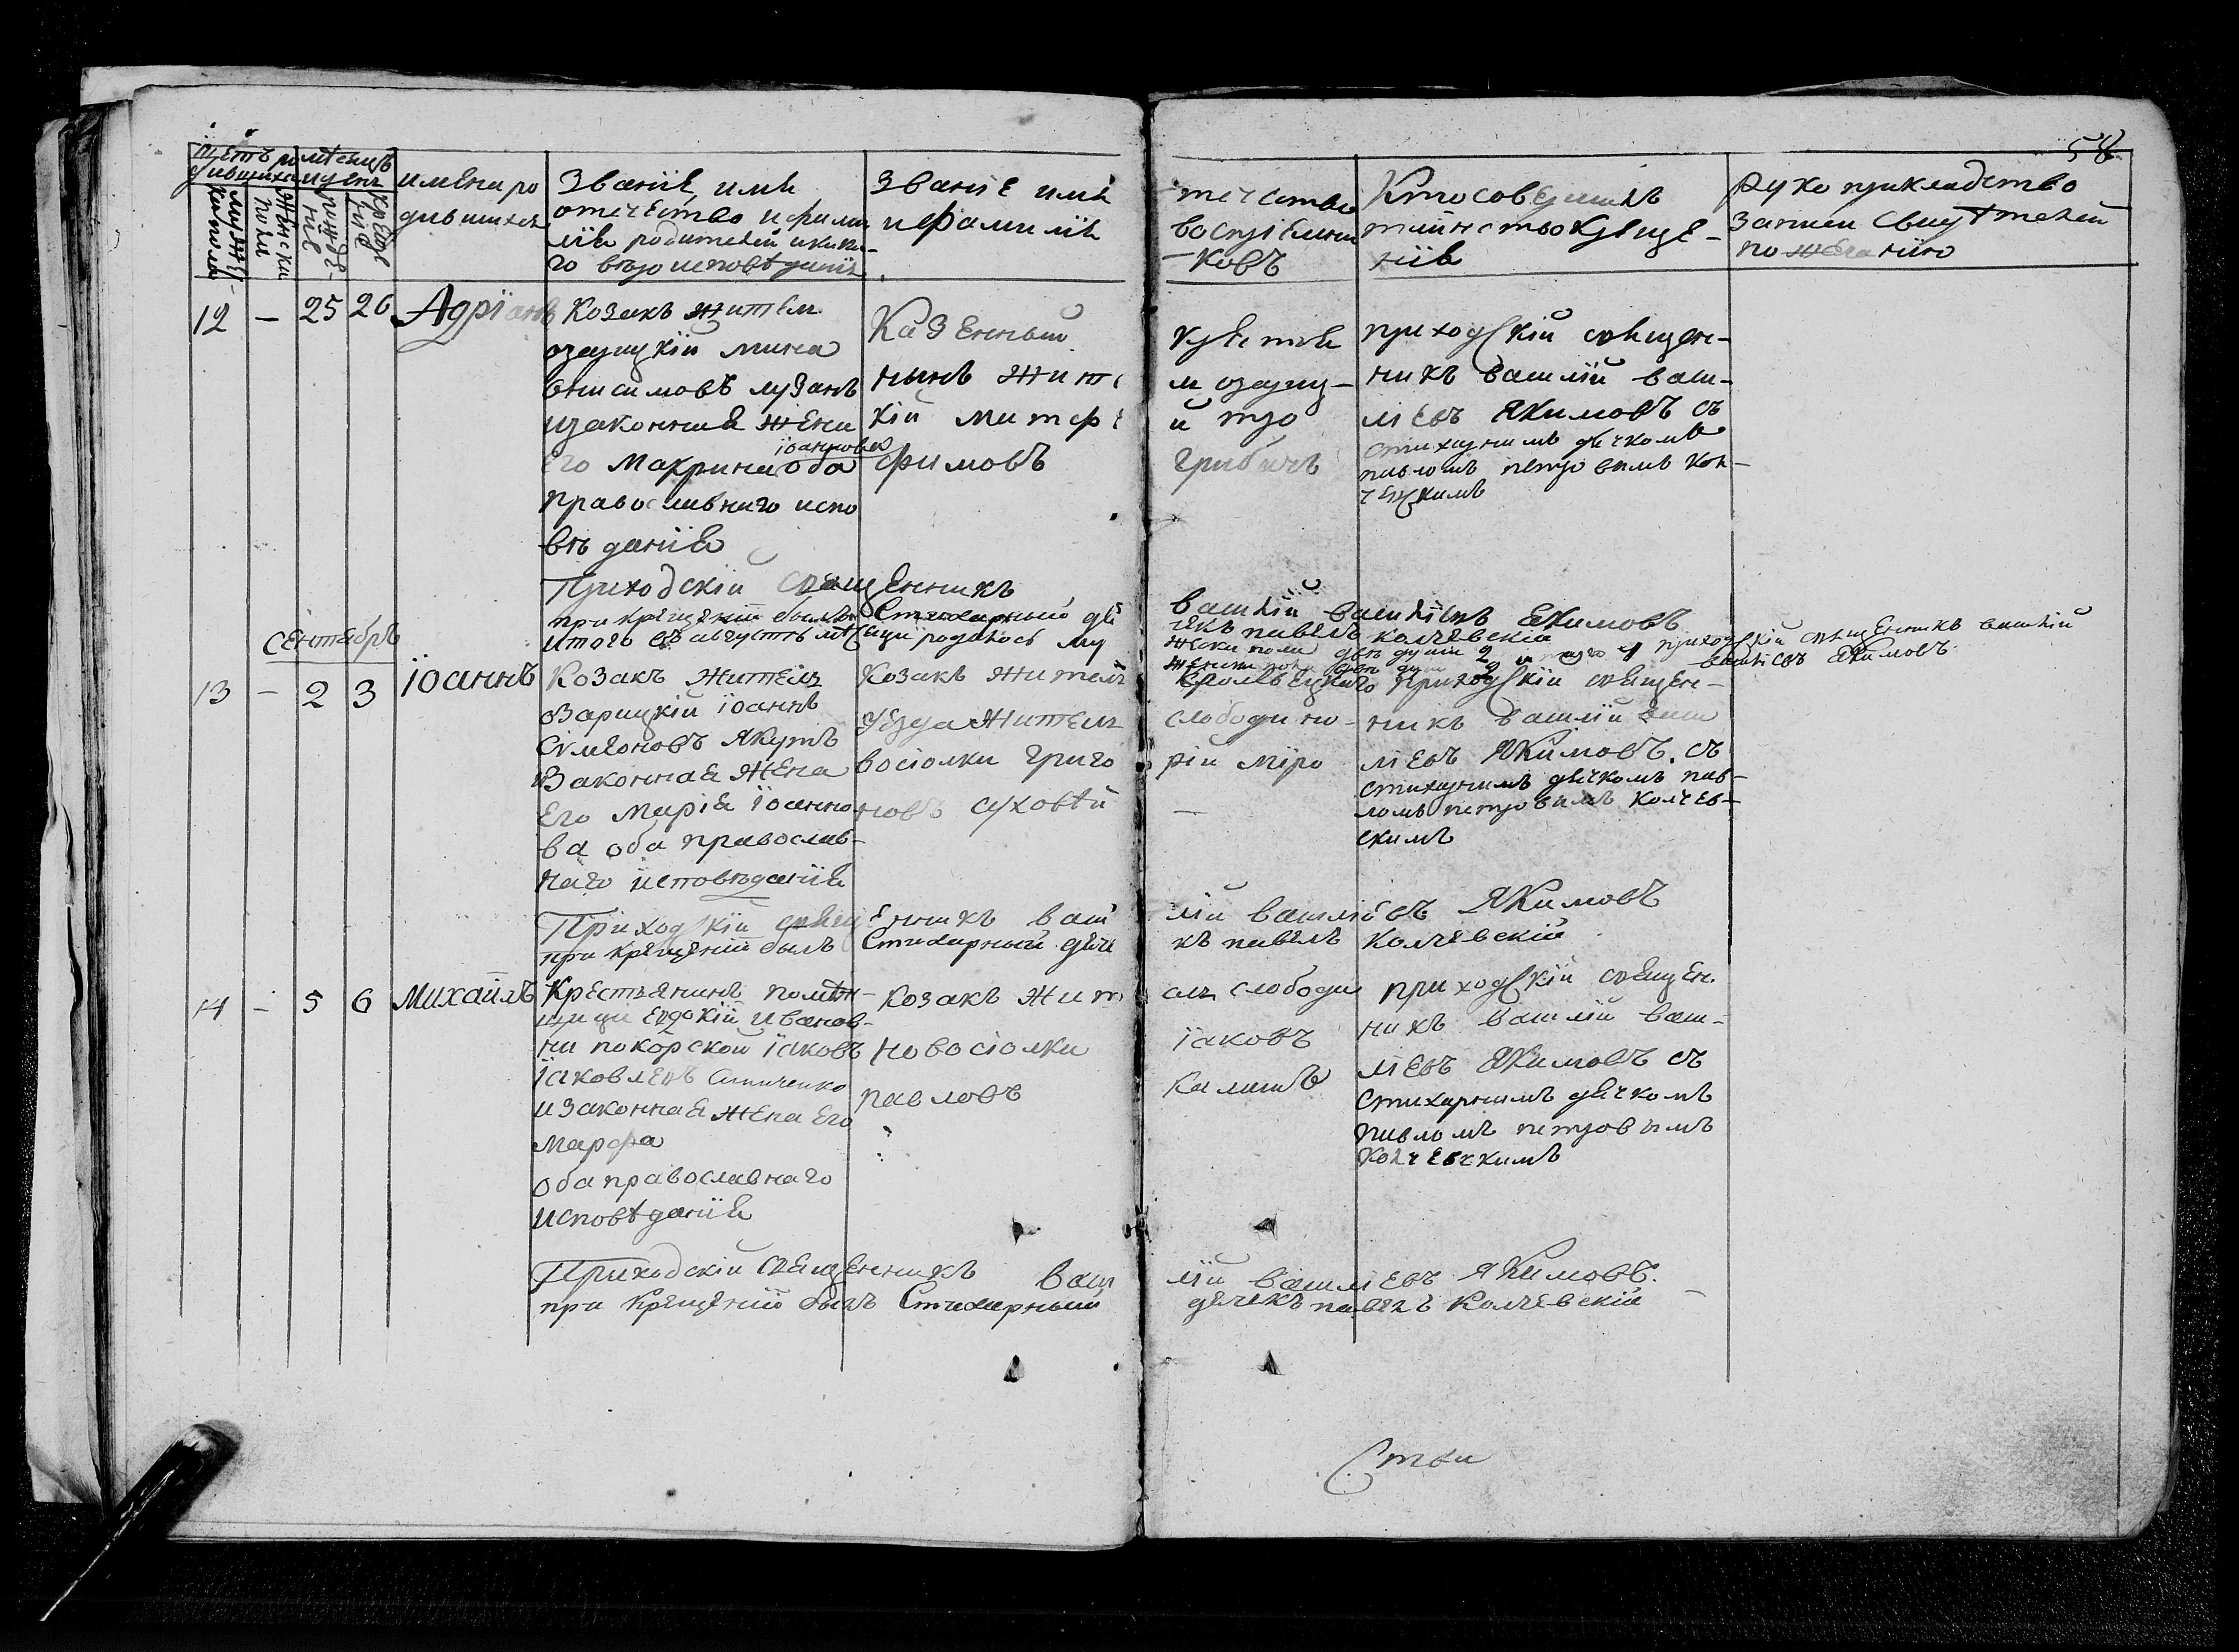 58
имена ро
дившихся
Званіе имя
отечество и фами
лія родителей и како
го вѣроисповѣданія
Званіе имя
и фамилія
отечество
воспріемни
ковъ
Кто совершилъ
таинство креще-
нія
Рукоприкладство
записи свидѣтелей
по желанію
12 — 25 26 Адріанъ
Козакъ житель
озарицкій мина
Онисимовъ лузанъ
и законная жена
его Макрина Іоаннова оба
православнаго испо
вѣданія
Казенный
нынъ жите
кій митроф
фимовъ
крестья
ль озариц-
й тро
грибанъ
приходскій священ-
никъ василій васи-
ліевъ Якимовъ съ
стихарнымъ дьячкомъ
павломъ петровымъ кол-
чевскимъ
Приходскій священникъ василій васильевъ Екимовъ
при крещеніи былъ Стихарный дьячекъ павелъ колчевскій
Итого въ августѣ мѣсяцѣ родилось му
женска пола двѣ души 2 и того 4 приходскій священникъ василій
васильевъ Якимовъ
Сентябрь
13 — 2 3 Іоаннъ
Козакъ житель
Озарицкій Іоаннъ
Симеоновъ Якутъ
Законная жена
его Марія Іоанно
ва оба православ-
наго исповѣданія
Козакъ житель
уѣзда житель
восіолки григо
новъ суховѣй
Кролевецкаго
слободи но-
рій міро
—
приходскій священ-
никъ василій васи
ліевъ Якимовъ съ
стихарнимъ дьячкомъ пав-
ломъ петровимъ Колчев-
скимъ
Приходскій священникъ василій васильевъ Якимовъ
при крещеніи былъ Стихарный дьячекъ павелъ Колчевскій
14 — 5 6 Михаилъ
Крестьянинъ помѣ-
щици Евдокіи Иванов-
ни покорской Іаковъ
Іаковлевъ
и законная жена его
Марфа
оба православнаго
исповѣданія
Козакъ жит
новосіолки
павловъ
ель слободи
Іаковъ
Калашъ
приходскій священ
никъ василій васи-
ліевъ Якимовъ съ
стихарнимъ дьячкомъ
павломъ петровымъ
Колчевскимъ
Приходскій священникъ василій васильевъ Якимовъ.
при крещеніи былъ Стихарный дьячекъ павелъ Колчевскій